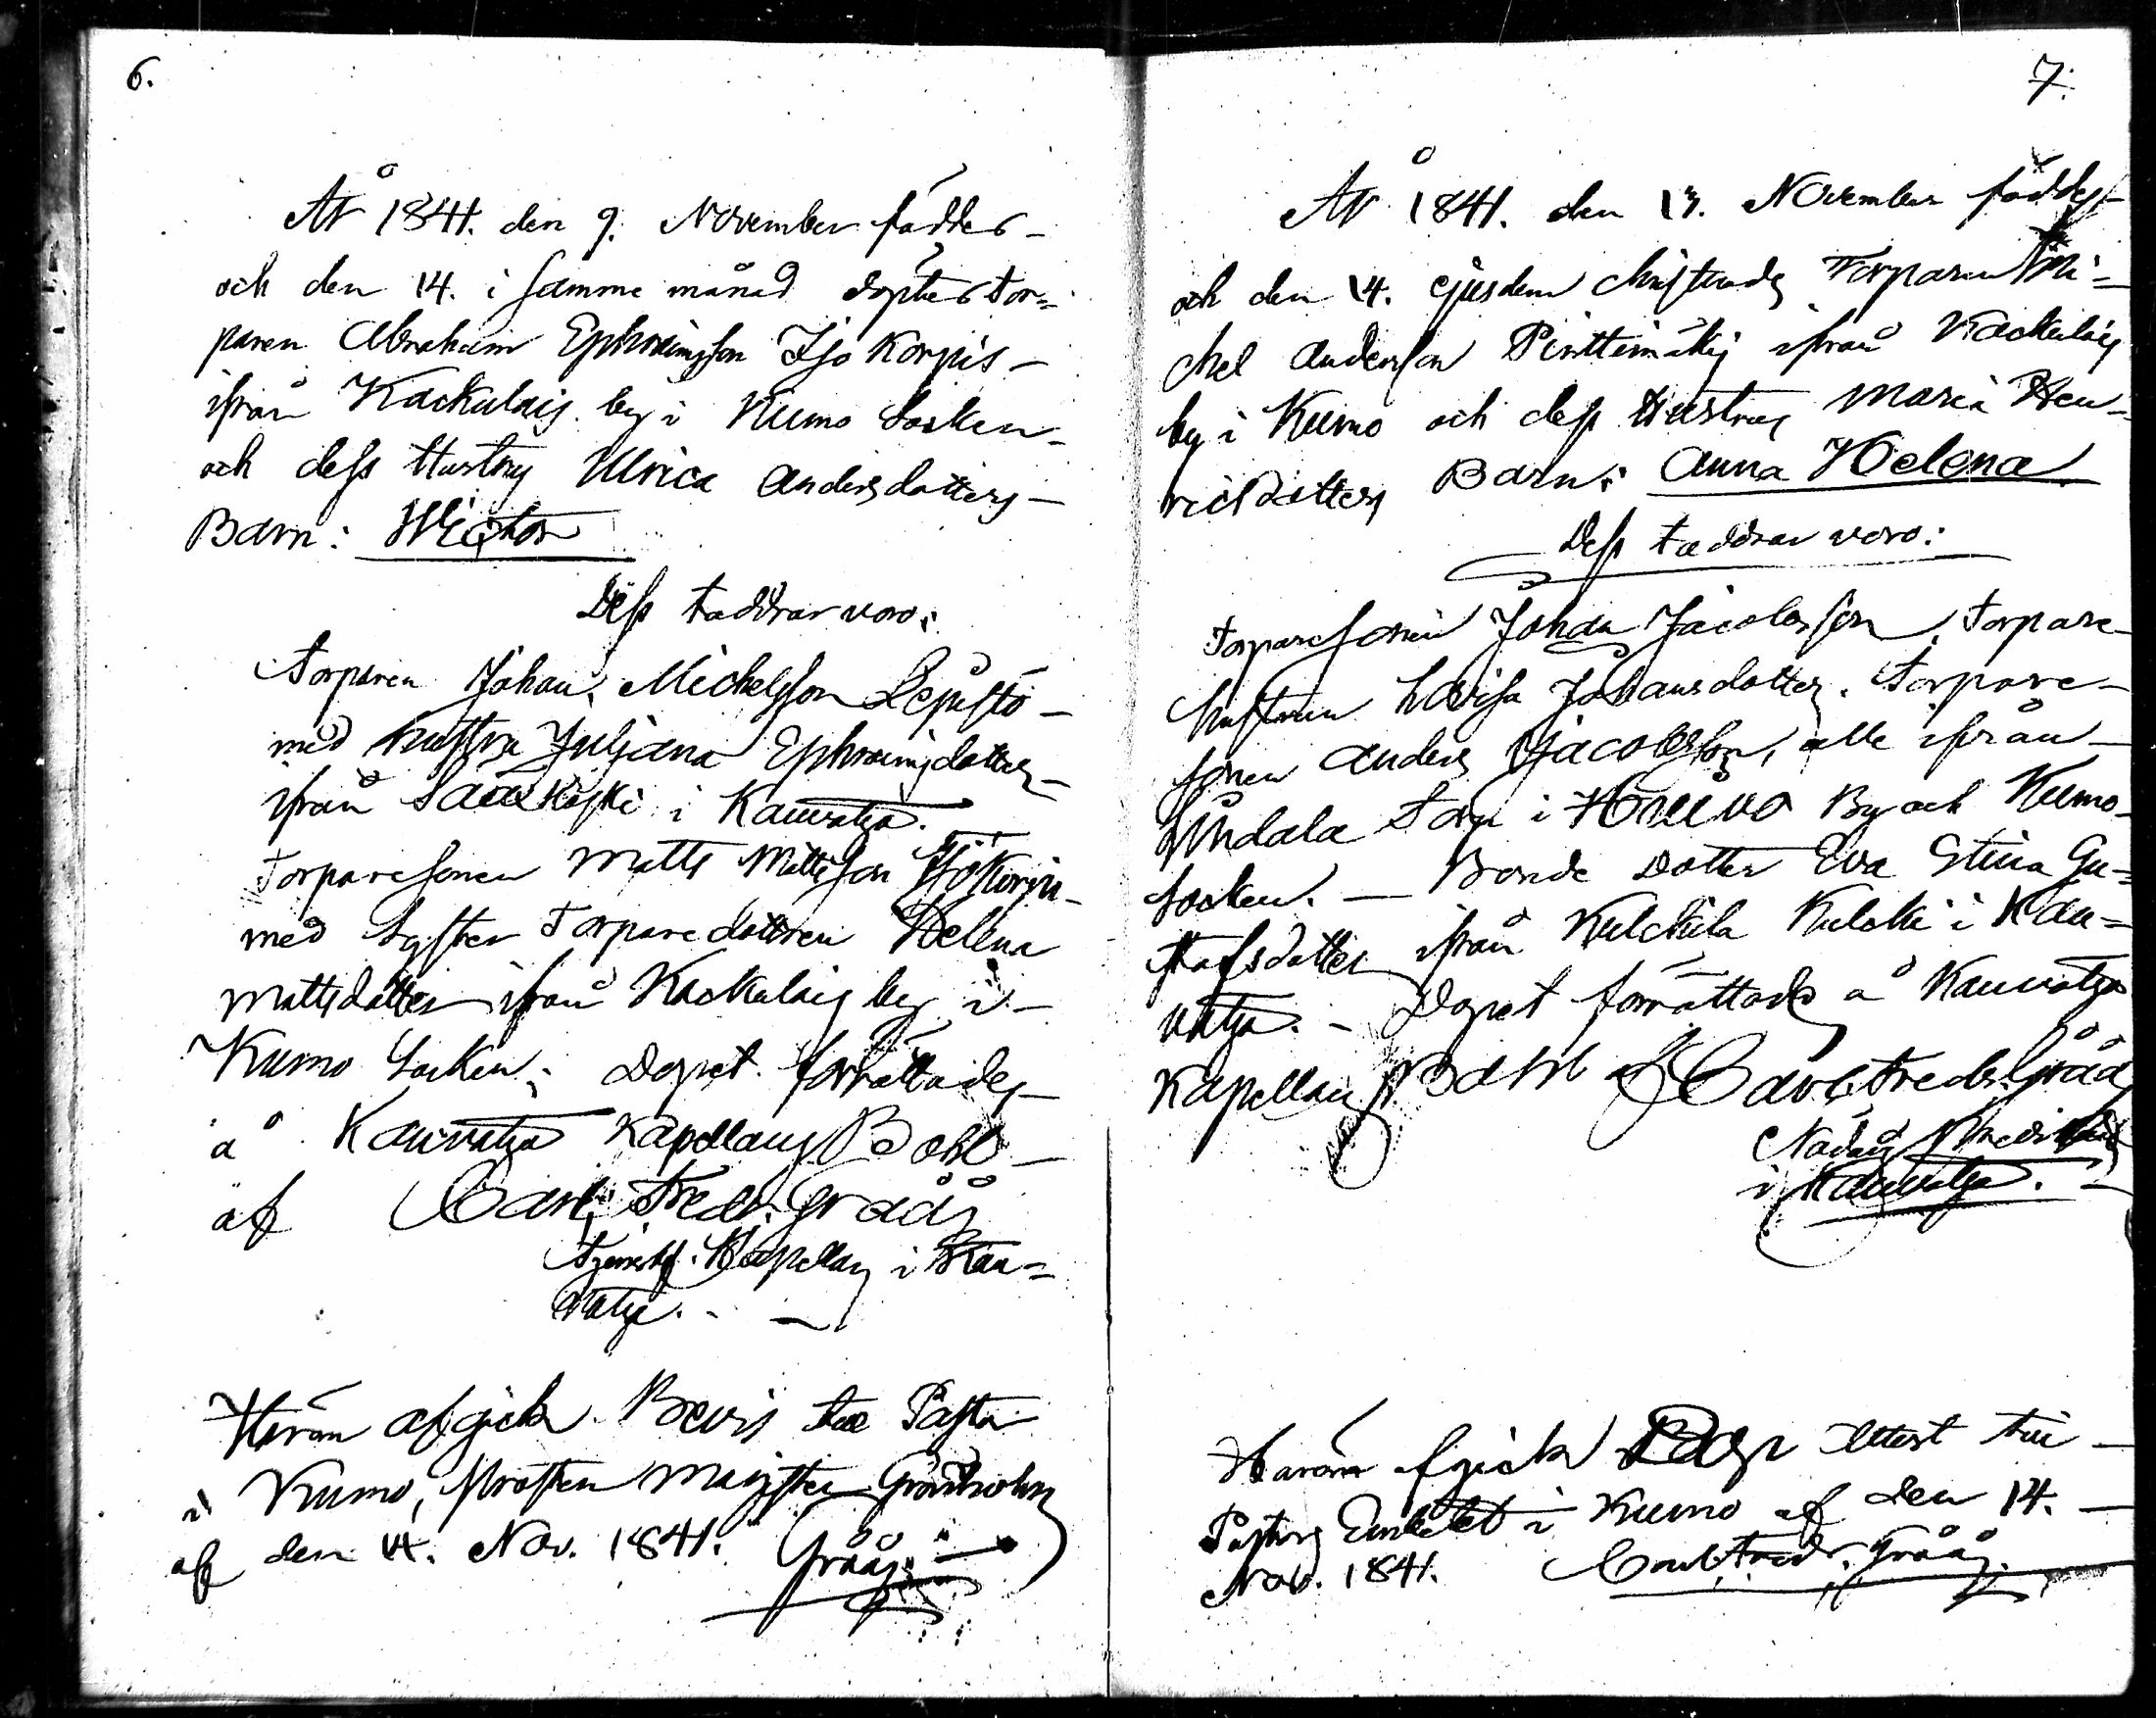 6.
År 1841. den 9. November föddes
och den 14. i samma månad döptes Tor=
paren Abraham Ephraimsson Iso Korpis
ifrån Kackulais by i Kumo Socken
och dess Hustrus Ulrica Andersdotters
Barn: Wictor
Dess Faddrar voro:
Torparen Johan Michelsson Lepistö
med hustru Juliana Ephraimsdotter
ifrån Sääkoski i Kauvatsa.
Torparesonen Matts Mattsson
med Syster Torparedottren Helena
Mattsdotter ifrån Kackulais by i
Kumo Socken; Dopet förrättades
å Kauvatsa Kapellans Bohl
af Carl Fredr. Gråås
Kapellan i Kau=
vatsa.
Härom afgick Bevis till Pastor
i Kumo, Prosten Magister Grönholm
af den 14. Nov. 1841. Gråås
7.
År 1841. den 13. November föddes
och den 14. ejusdem christnades Torparen Mi=
chel Andersson Penttimäkis ifrån Kackulais
by i Kumo och dess Hustrus Maria Hen=
ricsdotters Barn: Anna Helena
Dess Faddrar voro:
Torparesonen Johan Jacobsson, Torpare
hustrun Lovisa Johansdotter, Torpare
sonen Anders Jacobsson, alle ifrån
Torp i By och Kumo
Socken. — Bonde Dotter Eva Stina Gu=
stafsdotter ifrån Kulckila Kulcki i Kau=
vatsa. – Dopet förrättades å Kauvatsa
Kapellans Bohl af Carl Fredr. Gråås
Nådårs Predikant
i Kauvatsa.
Härom afgick Dop Attest till
Pastors Embetet i Kumo af den 14.
Nov. 1841. Carl Fredr. Gråås.